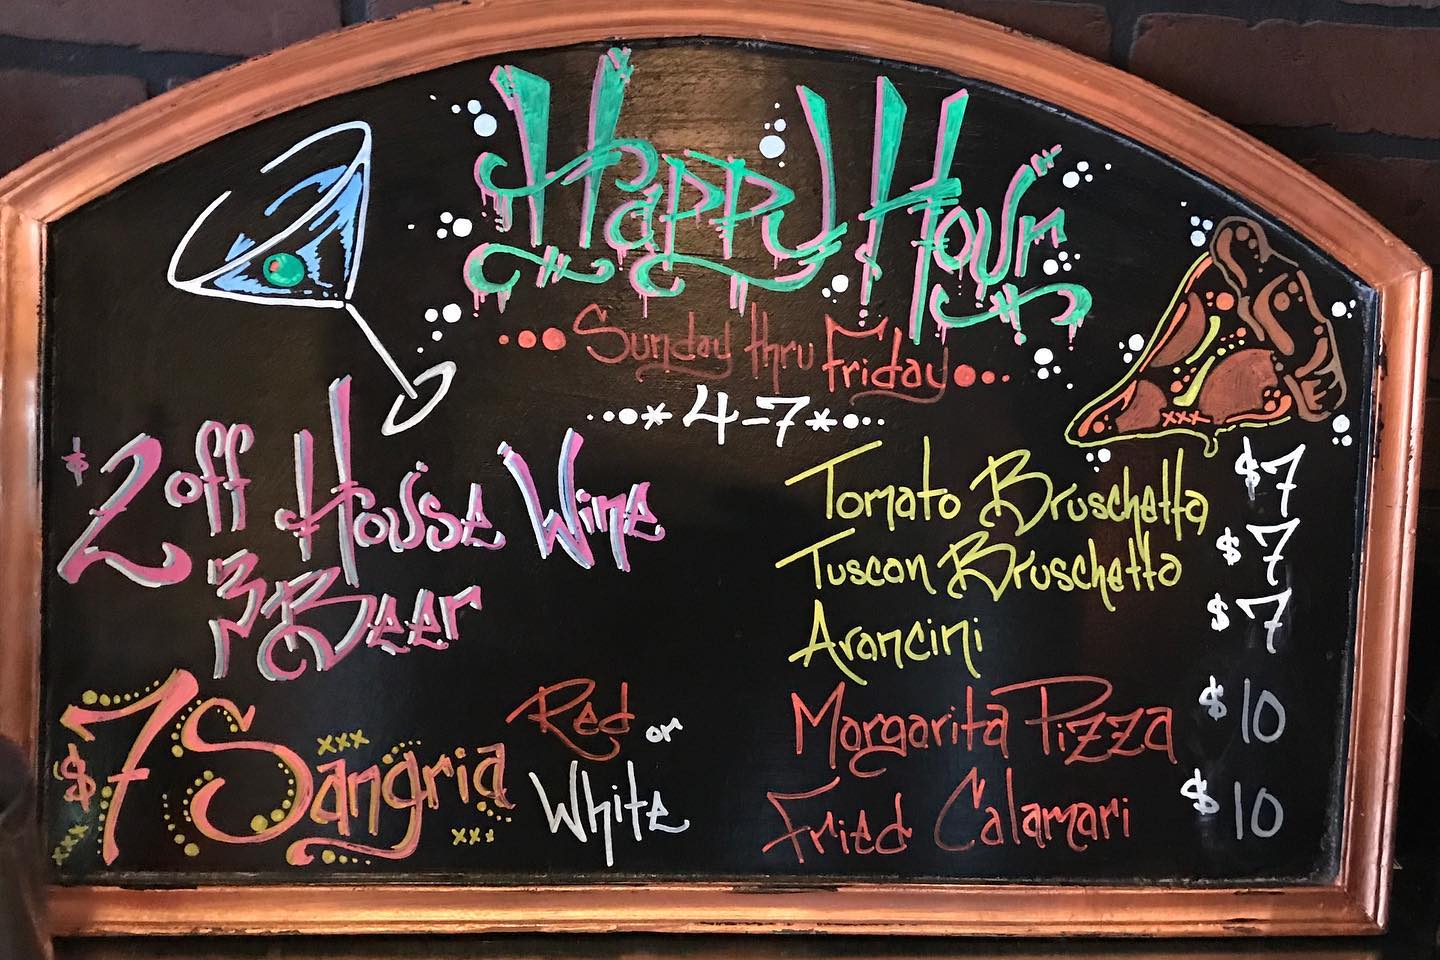 Happy Hour
Sunday thru Friday
4-7
$2 off House Wine
Beer
$7 Sangria Red or White
Tomato Bruschetta $7
Tuscan Bruschetta $7
Arancini $7
Margarita Pizza $10
Fried Calamari $10
xxx
xxx
xxx
xxx